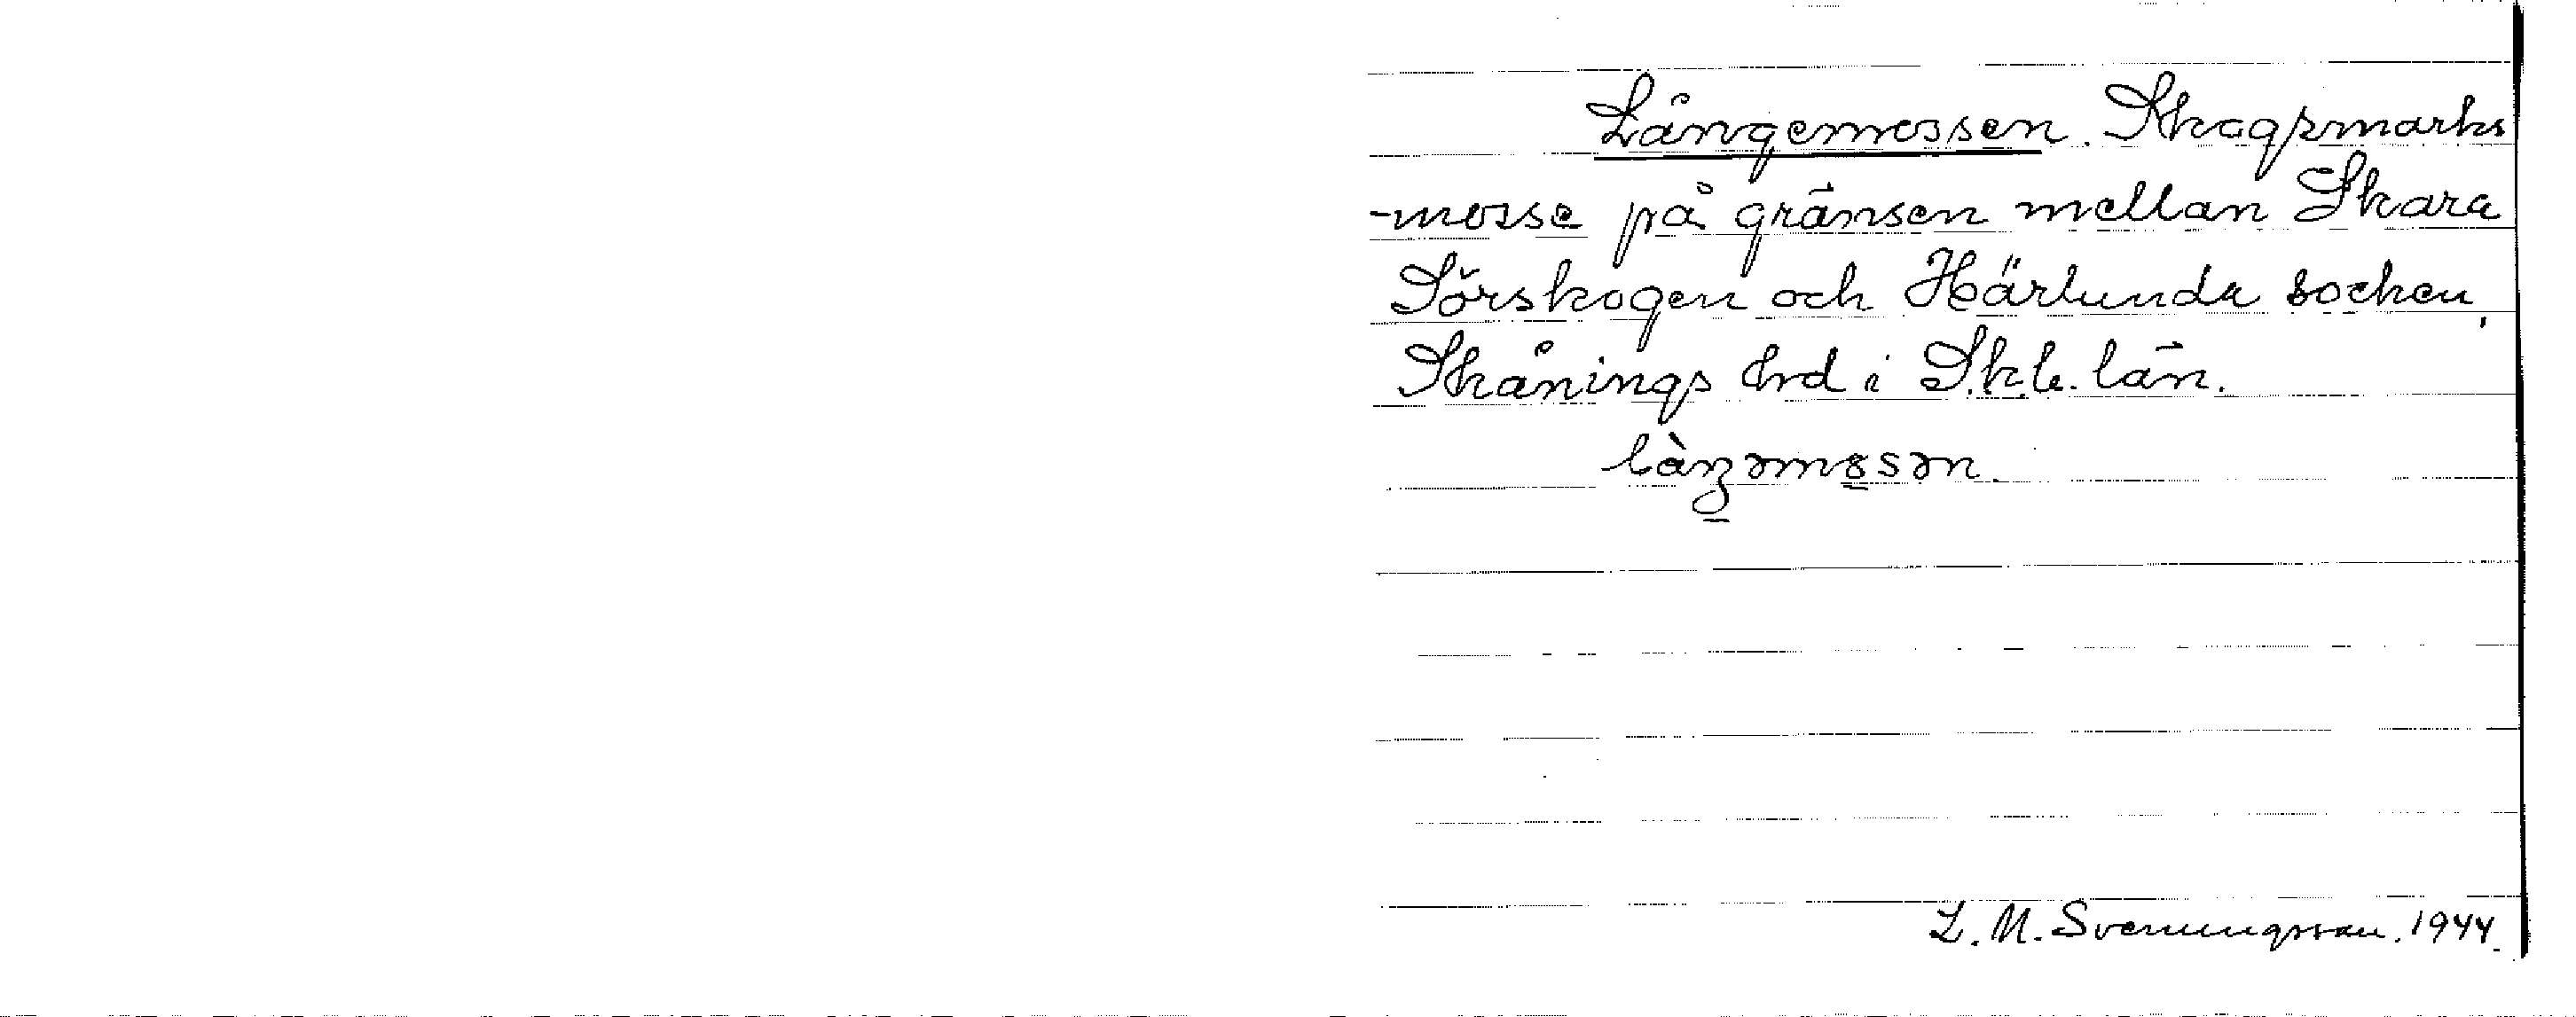 Långemossen. Skogsmarks
-mosse på gränsen mellan Skara
Sörskogen och Härlunda socken,
Skånings hrd i Sk.b. län.
L. M. Svenungsson. 1944.